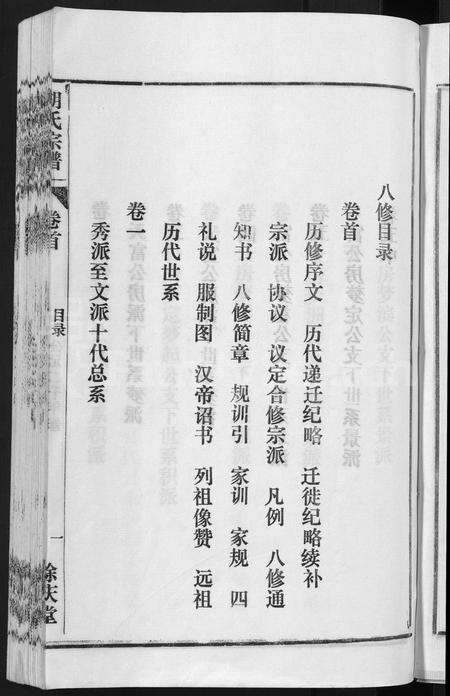 八修目录
卷首
历修序文 历代递迁纪略 迁徙纪略续补
宗派 协议 议定合修宗派 凡例 八修通
知书 八修简章 规训引 家训 家规 四
礼说 服制图 汉帝诏书 列祖像赞 远祖
历代世系
卷一
秀派至文派十代总系
胡氏宗谱 卷首 目录 一 馀庆堂